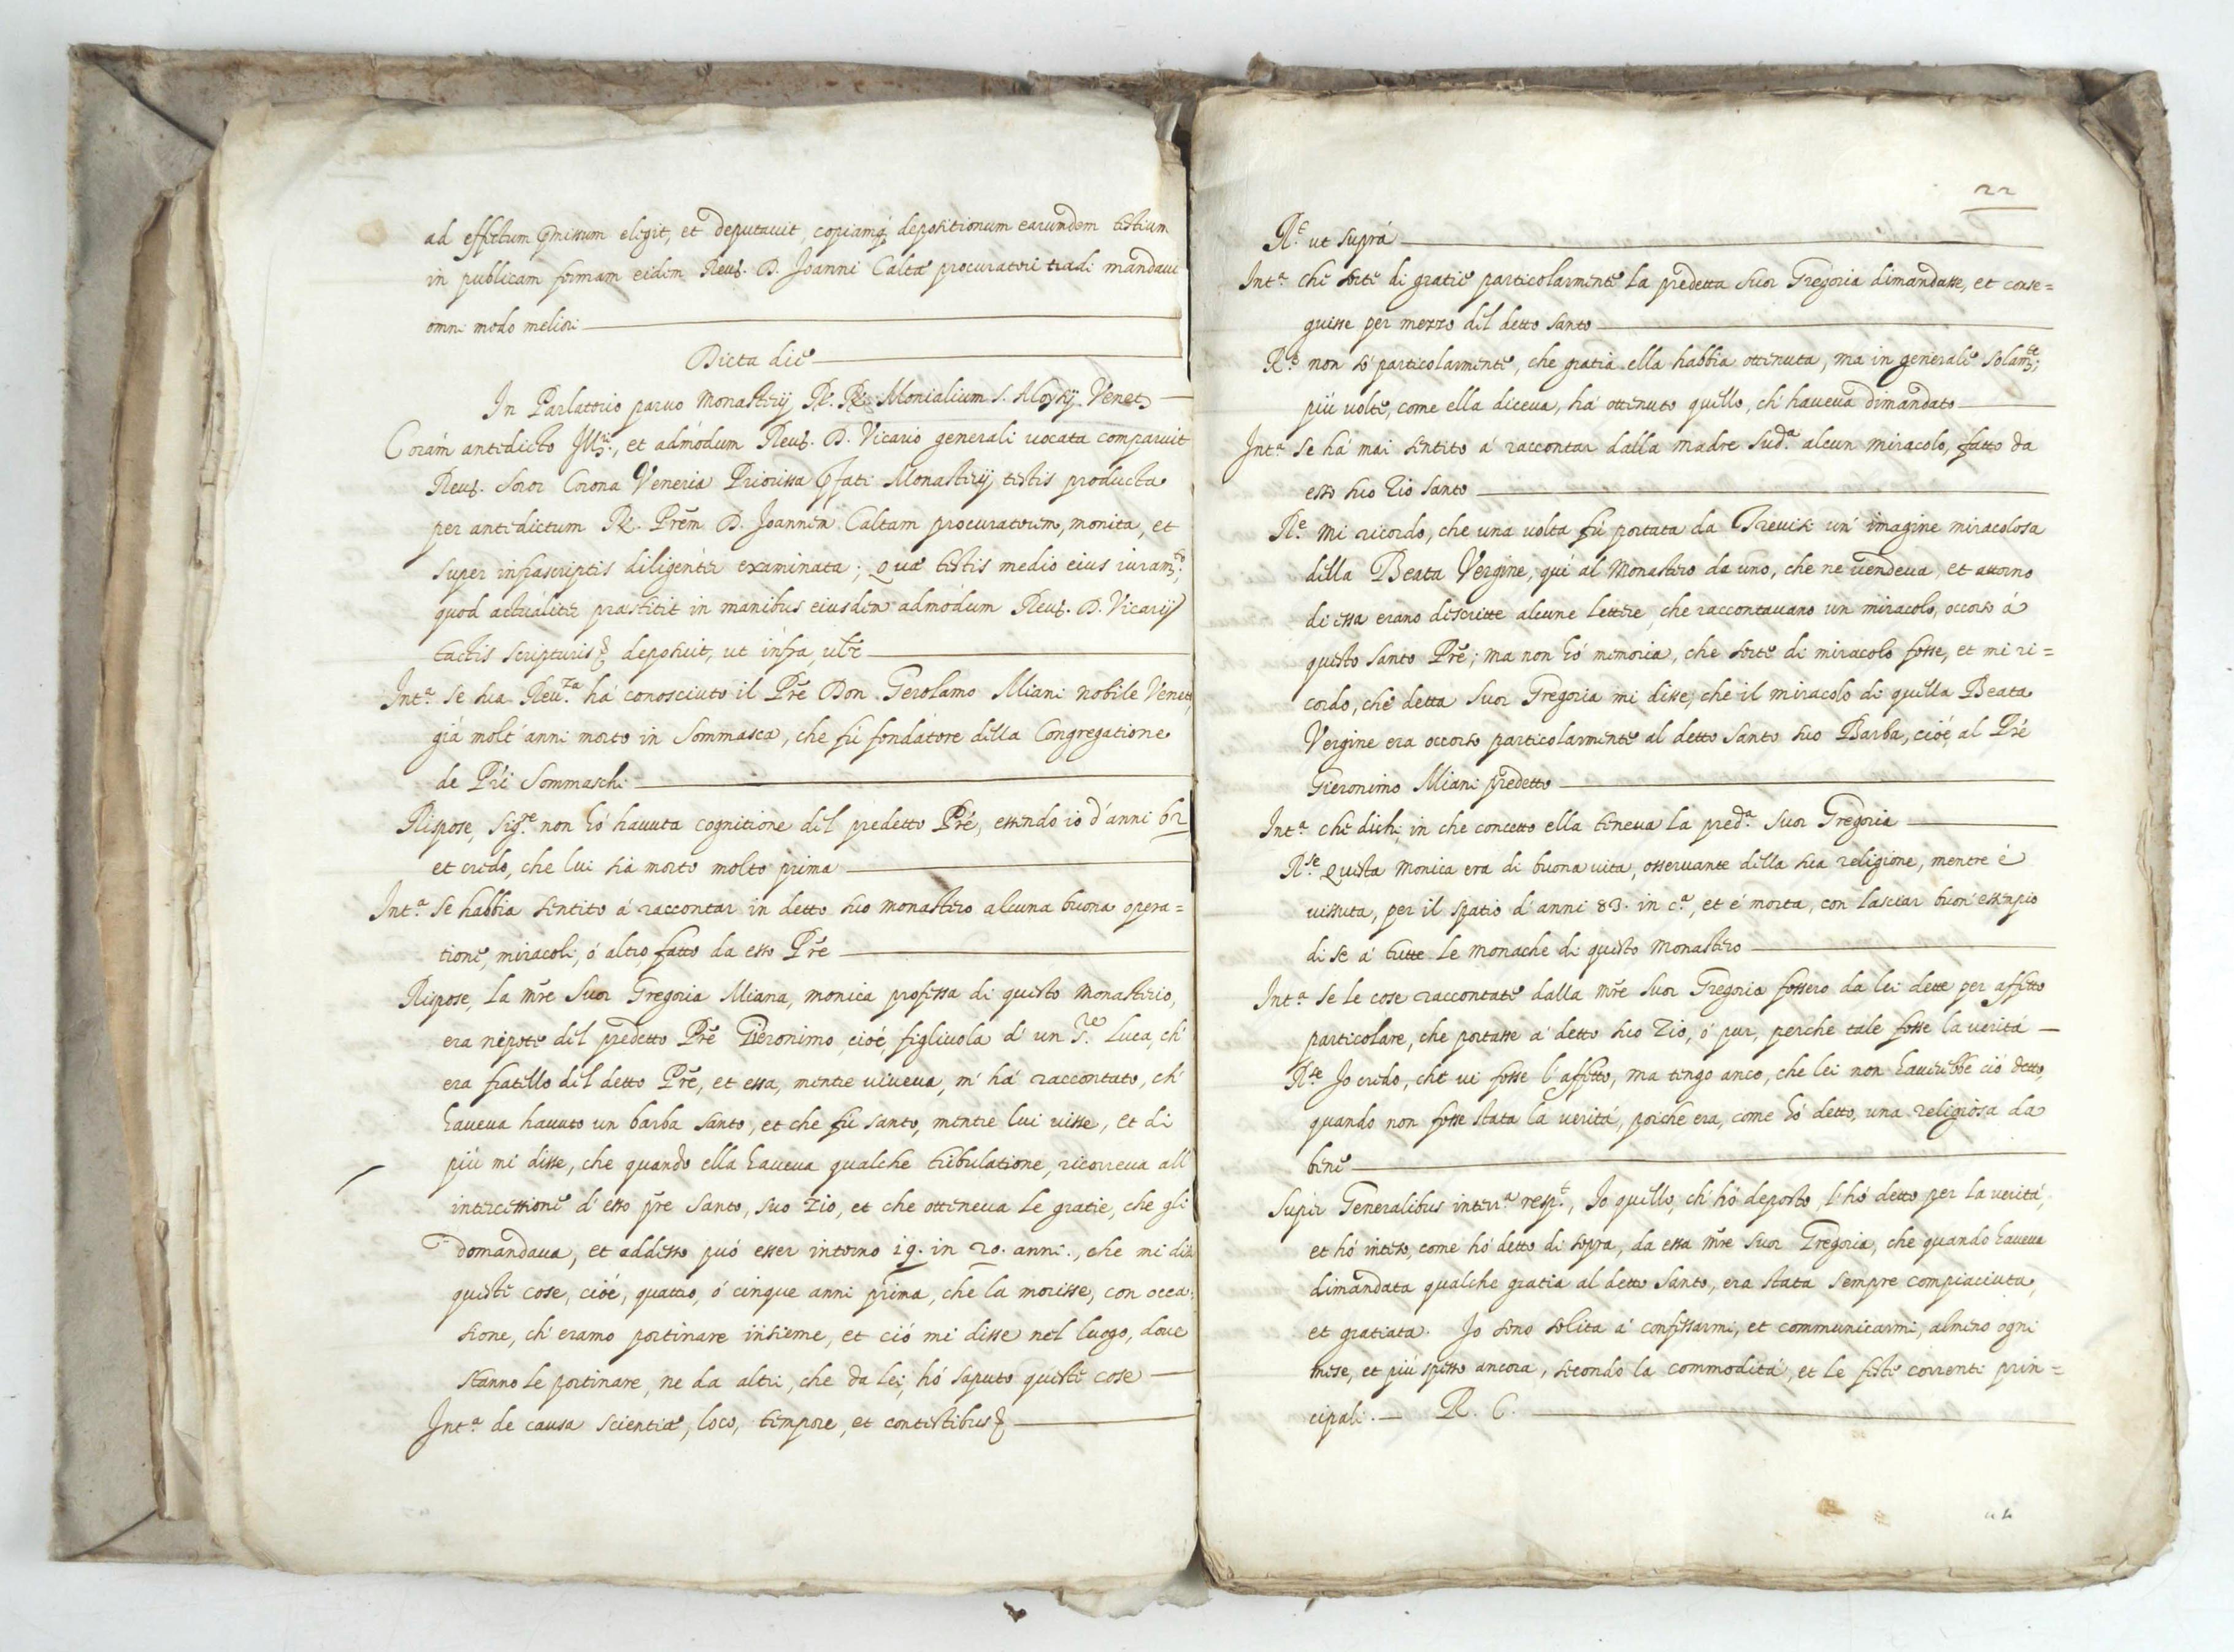 ad effectum p̃missum elegit, et deputauit, copiamq́ depositionum earumdem testium
in publicam formam eidem Reuḍ. D. Joanni Calta procuratori tradi mandaui
omni modo meliori
Dicta die
In Parlatorio paruo Monasterij R. R. Monialium S. Aloysij Venet
Corám antedicto Ill.ri, et admódum Reuḍ. D. Vicario generali uocata comparuit
Reuḍ. Soror Corona Veneria Priorissa p̃fati Monasterij testis producta
per antedictum R. Prẽm D. Joannem Caltam procuratorem, monita, et
super infrascriptis diligentér examinata; Quæ testis medio eius iuram.to,
quod actuálitér præstitit in manibus eiusdem admódum Reuḍ. D. Vicarij
tactis scripturis & deposuit, ut infra, ul̃r
Int.ª Se sua Reu.za há conosciuto il Prẽ Don Gerolamo Miani nobile Veneto,
giá molt' anni morto in Sommasca, che fú fondatore della Congregatione
de Prĩ Sommaschi
Rispose, Sig.re non hó hauuta cognitione del predetto Prẽ, essendo io d'anni 62
et credo, che lui sia morto molto prima
Int.ª Se habbia sentito á raccontar in detto suo monastero alcuna buona opera=
tione, miracoli, ó altro, fatto da esso Prẽ
Rispose, La mr̃e Suor Gregoria Miana, monica professa di questo monasterio,
era nepote del predetto Prẽ Gieronimo, cioé, figliuola d' un S.re Luca, ch'
era fratello del detto Prẽ, et essa, mentre uiueua, m' há raccontato, ch'
haueua hauuto un barba santo, et che fú santo, mentre lui uisse, et di
piú mi disse, che quando ella haueua qualche tribulatione, ricorreua all'
intercessione d' esso pr̃e santo, suo zio, et che otteneua le gratie, che gli
domandaua, et addesso puó esser intorno 19. in 20. anni, che mi diss
queste cose, cioé, quattro, ó cinque anni prima, che la morisse, con occa=
sione, ch' eramo portinare insieme, et ció mi disse nel luogo, doue
stanno le portinare, ne da altri, che da lei, hó saputo queste cose
Int.ª de causa scientiæ, loco, tempore, et contestibus &
22
R.e ut suprá
Int.ª che sorte di gratie particolarmente la predetta Suor Gregoria dimandasse, et conse=
guisse per mezzo del detto santo
R.e non só particolarmente, che gratia ella habbia ottenuta, ma in generale solam.te,
piú uolte, come ella diceua, há ottenuto quello, ch' haueua dimandato
Int.ª Se há mai sentito á raccontar dalla madre sud.ª alcun miracolo, fatto da
esso suo Zio santo
R.e Mi ricordo, che una uolta fú portata da Treuisi un' imagine miracolosa
della Beata Vergine, quí al Monastero da uno, che ne uendeua, et attorno
di essa erano descritte alcune lettere, che raccontauano un miracolo, occorso á
questo santo Prẽ; ma non hó memoria, che sorte di miracolo fosse, et mi ri=
cordo, che detta Suor Gregoria mi disse, che il miracolo di quella Beata
Vergine era occorso particolarmente al detto santo suo Barba, cioé, al Prẽ
Gieronimo Miani predetto
Int.ª che dichi, in che concetto ella teneua la pred.ª Suor Gregoria
R.se Questa monica era di buona uita, osseruante della sua religione, mentre é
uissuta, per il spatio d' anni 83. in c.ª, et é morta, con lasciar buon' essempio
di se á tutte le monache di questo monastero
Int.ª Se le cose raccontate dalla mr̃e Suor Gregoria fossero da lei dette per affetto
particolare, che portasse á detto suo Zio, ó pur, perche tale fosse la ueritá
R.se Jo credo, che ui fosse l' affetto, ma tengo anco, che lei non hauerebbe ció detto,
quando non fosse stata la ueritá, poiche era, come hó detto, una religiosa da
bene
Super Generalibus interr.ª resp.t, Jo quello, ch' hó deposto, l' hó detto per la ueritá,
et hó inteso, come hó detto di sopra, da essa mr̃e Suor Gregoria, che quando haueua
dimandata qualche gratia al detto santo, era stata sempre compiaciuta,
et gratiata. Jo sono solita á confessarmi, et communicarmi, almeno ogni
mese, et piú spesso ancora, secondo la commoditá, et le feste correnti prin=
cipali. R. C.